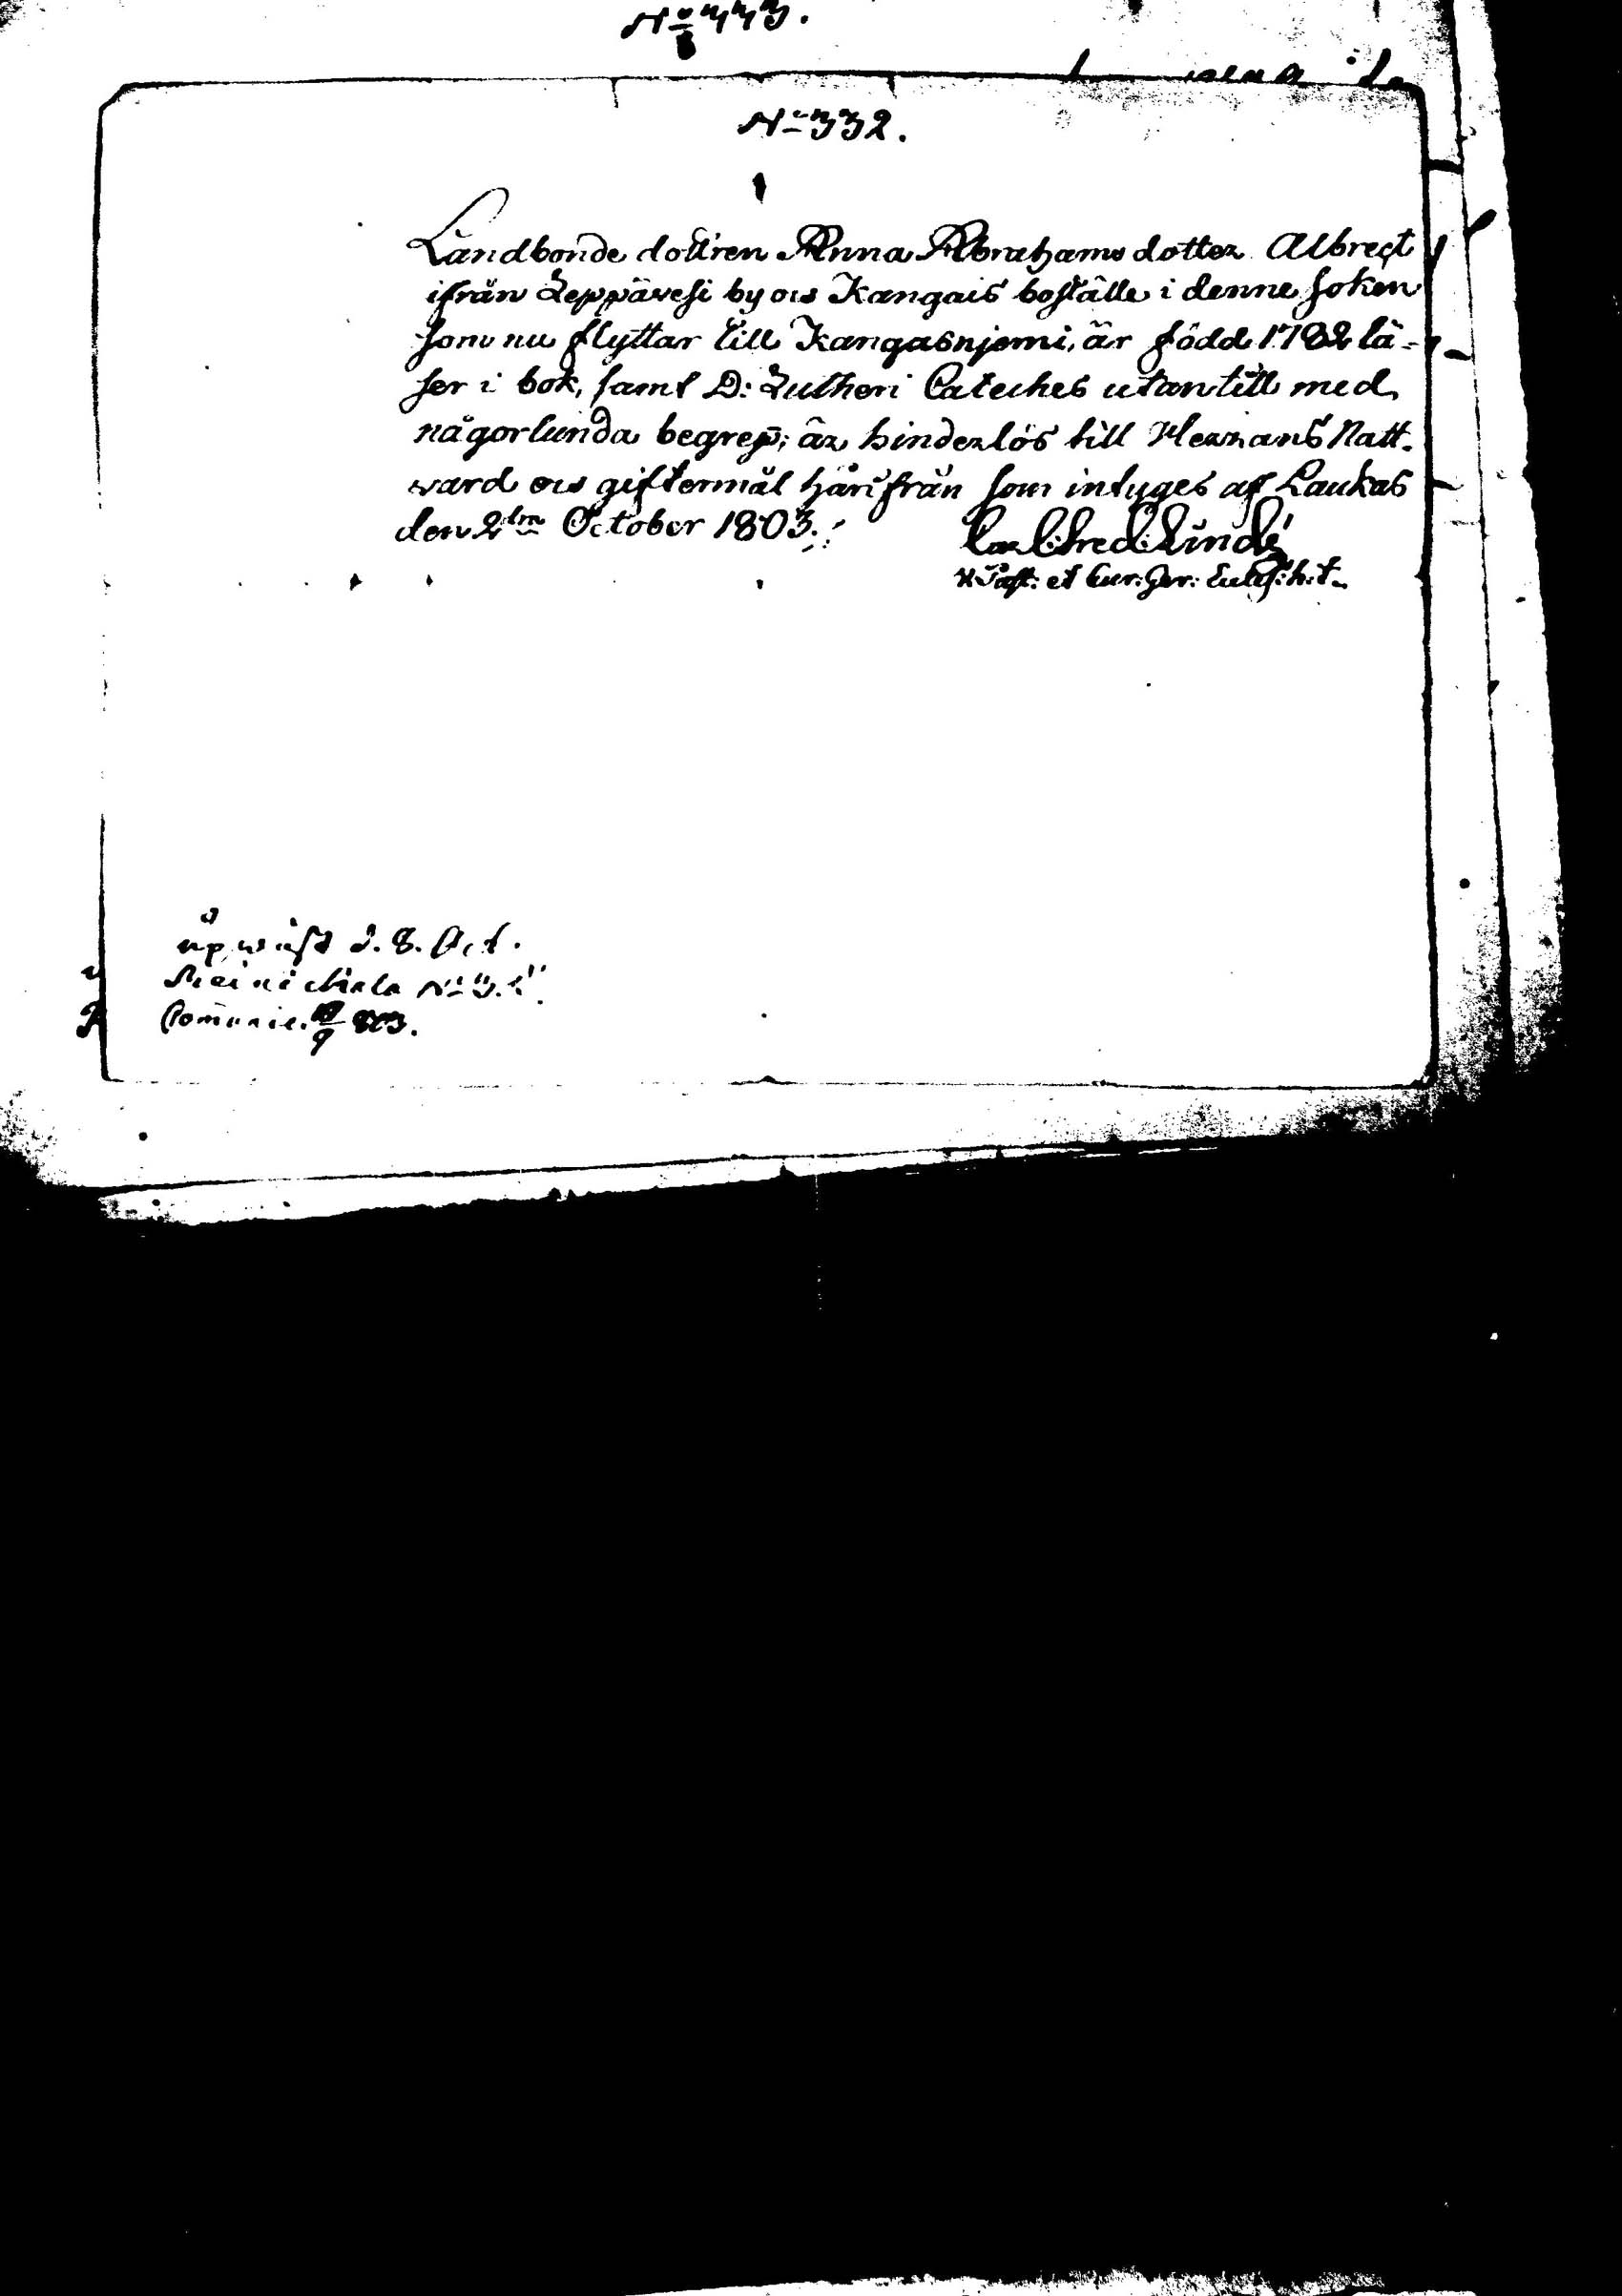 N:o 333.
N:o 332.
Landbonde dottren Anna Abrahams dotter Albrecht
ifrån Leppävesi by ow Kangais boställe i denne soken
som nu flyttar till Kangasnjemi, är född 1782 lä-
ser i bok, samt D: Lutheri Cateches utantill med
någorlunda begrep; är hinderlös till Herrans Natt-
ward ow giftermål härifrån som intyges af Laukas
den 2:dm October 1803.
Carl: Fred: Lindé
et Cur: Ger:
upwist d. 8. Oct.
Comunic. 803.